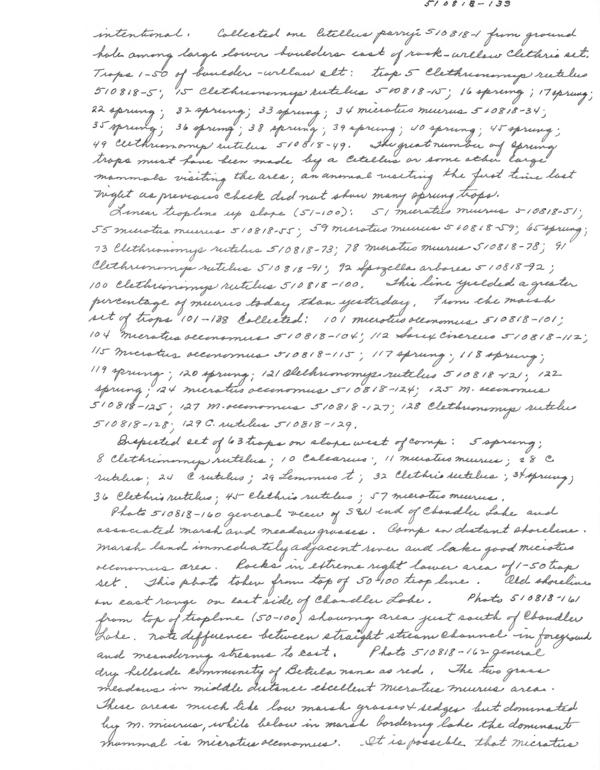 510818-133
intentional. Collected one Citellus parryi 510818-1 from ground
hole among large lower boulders east of rock-willow Clethris set.
Traps 1-50 of boulder-willow slt: trap 5 Clethrionomys rutilus
510818-5; 15 Clethrionomys rutilus 510818-15; 16 sprung; 17 sprung;
22 sprung; 32 sprung; 33 sprung; 34 microtus miurus 510818-34;
35 sprung; 36 sprung; 38 sprung; 39 sprung; 40 sprung; 45 sprung;
49 Clethrionomys rutilus 510818-49. The great number of sprung
traps must have been made by a Citellus or some other large
mammals visiting the area; an animal visiting the first time last
night as previous check did not show many sprung traps.
Linear trapline up slope (51-100): 51 microtus miurus 510818-51;
55 microtus miurus 510818-55; 59 microtus miurus 510818-59; 65 sprung;
73 Clethrionomys rutilus 510818-73; 78 microtus miurus 510818-78; 91
Clethrionomys rutilus 510818-91; 92 Spizella arborea 510818-92;
100 Clethrionomys rutilus 510818-100. This line yielded a greater
percentage of miurus today than yesterday. From the marsh
set of traps 101-138 Collected: 101 microtus oeconomus 510818-101;
104 microtus oeconomus 510818-104; 112 Sorex cinereus 510818-112;
115 microtus oeconomus 510818-115; 117 sprung; 118 sprung;
119 sprung; 120 sprung; 121 Clethrionomys rutilus 510818-121; 122
sprung; 124 microtus oeconomus 510818-124; 125 M. oeconomus
510818-125; 127 M. oeconomus 510818-127; 128 Clethrionomys rutilus
510818-128; 129 C. rutilus 510818-129.
Inspected set of 63 traps on slope west of camp: 5 sprung;
8 Clethrionomys rutilus; 10 Calcarius; 11 microtus miurus; 18 C.
rutilus; 24 C rutilus; 29 Lemmus t; 32 Clethris rutilus; 34 sprung;
36 Clethris rutilus; 45 Clethris rutilus; 57 microtus miurus.
Photo 510818-160 general view of SW end of Chandler Lake and
associated marsh and meadow grasses. Camp on distant shoreline.
Marsh land immediately adjacent river and lake good microtus
oeconomus area. Rocks in extreme right lower area of 1-50 trap
set. This photo taken from top of 50-100 trap line. Old shoreline
on east range on east side of Chandler Lake. Photo 510818-161
from top of trapline (50-100) showing area just south of Chandler
Lake. Note difference between straight stream channel in foreground
and meandering streams to east. Photo 510818-162 general
dry hillside community of Betula nana as red. The two grass
meadows in middle distance excellent microtus miurus area.
These areas much like low marsh grasses & sedges but dominated
by m. miurus, while below in marsh bordering lake the dominant
mammal is microtus oeconomus. It is possible that microtus